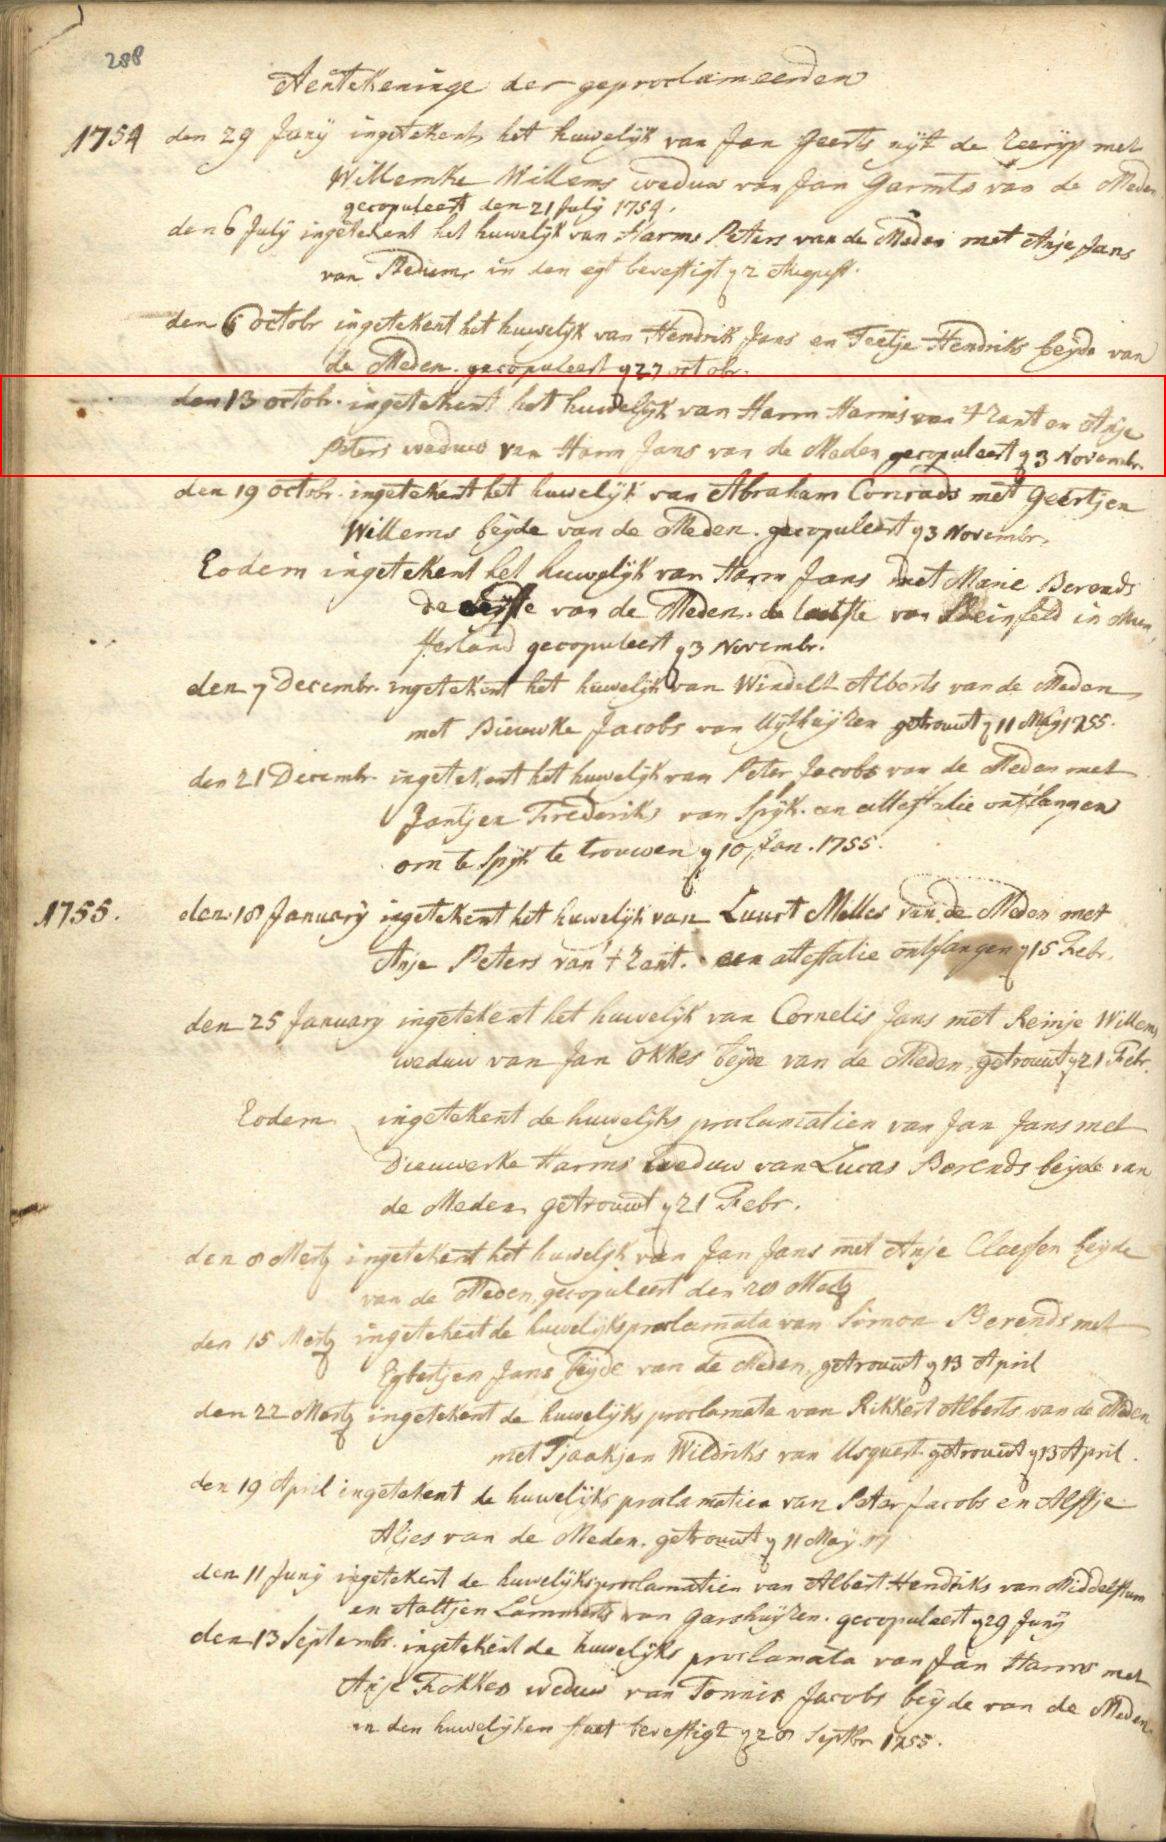 288
Aentekeninge der geproclameerden
1754 den 29 Junij ingetekent het huwelijk van Jan Geerts uijt de Zeerijp met
Willemke Willems weduw van Jan Garmts van de Meden
gecopuleert den 21 July 1754.
den 6 July ingetekent het huwelijk van Harm Peters van de Meden met Anje Jans
van Bedum, in den egt bevestigt y 2 August.
den 6 octobr ingetekent het huwelijk van Hendrik Jans en Teetje Hendriks beyde van
de Meden. gecopuleert y 27 octobr.
den 13 octobr. ingetekent het huwelijk van Harm Harms van 't Zant en Anje
Peters weduw van Harm Jans van de Meden gecopuleert y 3 Novembr.
den 19 octobr. ingetekent het huwelijk van Abraham Conrads met Geertjen
Willems beyde van de Meden. gecopuleert y 3 Novembr.
Eodem ingetekent het huwelijk van Harm Jans met Marie Berends
de van de Meden. de laatste van in Mun
sterland gecopuleert y 3 Novembr.
den 7 Decembr. ingetekent het huwelijk van Windelt Alberts van de Meden
met Bieuwke Jacobs van Uythuyzen getrouwt y 11 May 1755.
den 21 Decembr. ingetekent het huwelijk van Peter Jacobs van de Meden met
Jantjen Frederiks van Spijk. en attestatie ontfangen
om te Spijk te trouwen y 10 Jan. 1755.
1755. den 18 January ingetekent het huwelijk van Luurt Melles van de Meden met
Anje Peters van 't Zant. een attestatie ontfangen y 15 Febr.
den 25 January ingetekent het huwelijk van Cornelis Jans met Reinje Willems
weduw van Jan Okkes beyde van de Meden, getrouwt y 21 Febr.
Eodem ingetekent de huwelijks proclamatien van Jan Jans met
Dieuwerke Harms weduw van Lucas Berends beyde van
de Meden getrouwt y 21 Febr.
den 8 Mertz ingetekent het huwelijk van Jan Jans met Anje Claessen beyde
van de Meden, gecopuleert den 28 Mertz
den 15 Mertz ingetekent de huwelijksproclamata van Simon Berends met
Egbertjen Jans beyde van de Meden, getrouwt y 13 April
den 22 Mertz ingetekent de huwelijks proclamata van Rikkert Alberts van de Meden
met Tjaakjen Wildriks van Usquert getrouwt y 13 April.
den 19 April ingetekent de huwelijks proclamatien van Peter Jacobs en Alstje
Aljes van de Meden. getrouwt y 11 May.
den 11 Junij ingetekent de huwelijksproclamatien van Albert Hendriks van Middelstum
en Aaltjen Lammerts van Garshuyzen. gecopuleert y 29 Junij
den 13 Septembr. ingetekent de huwelijks proclamata van Jan Harms met
Anje Fokkes weduw van Tonnis Jacobs beyde van de Meden.
in den huwelijken staet bevestigt y 28 Septbr 1755.